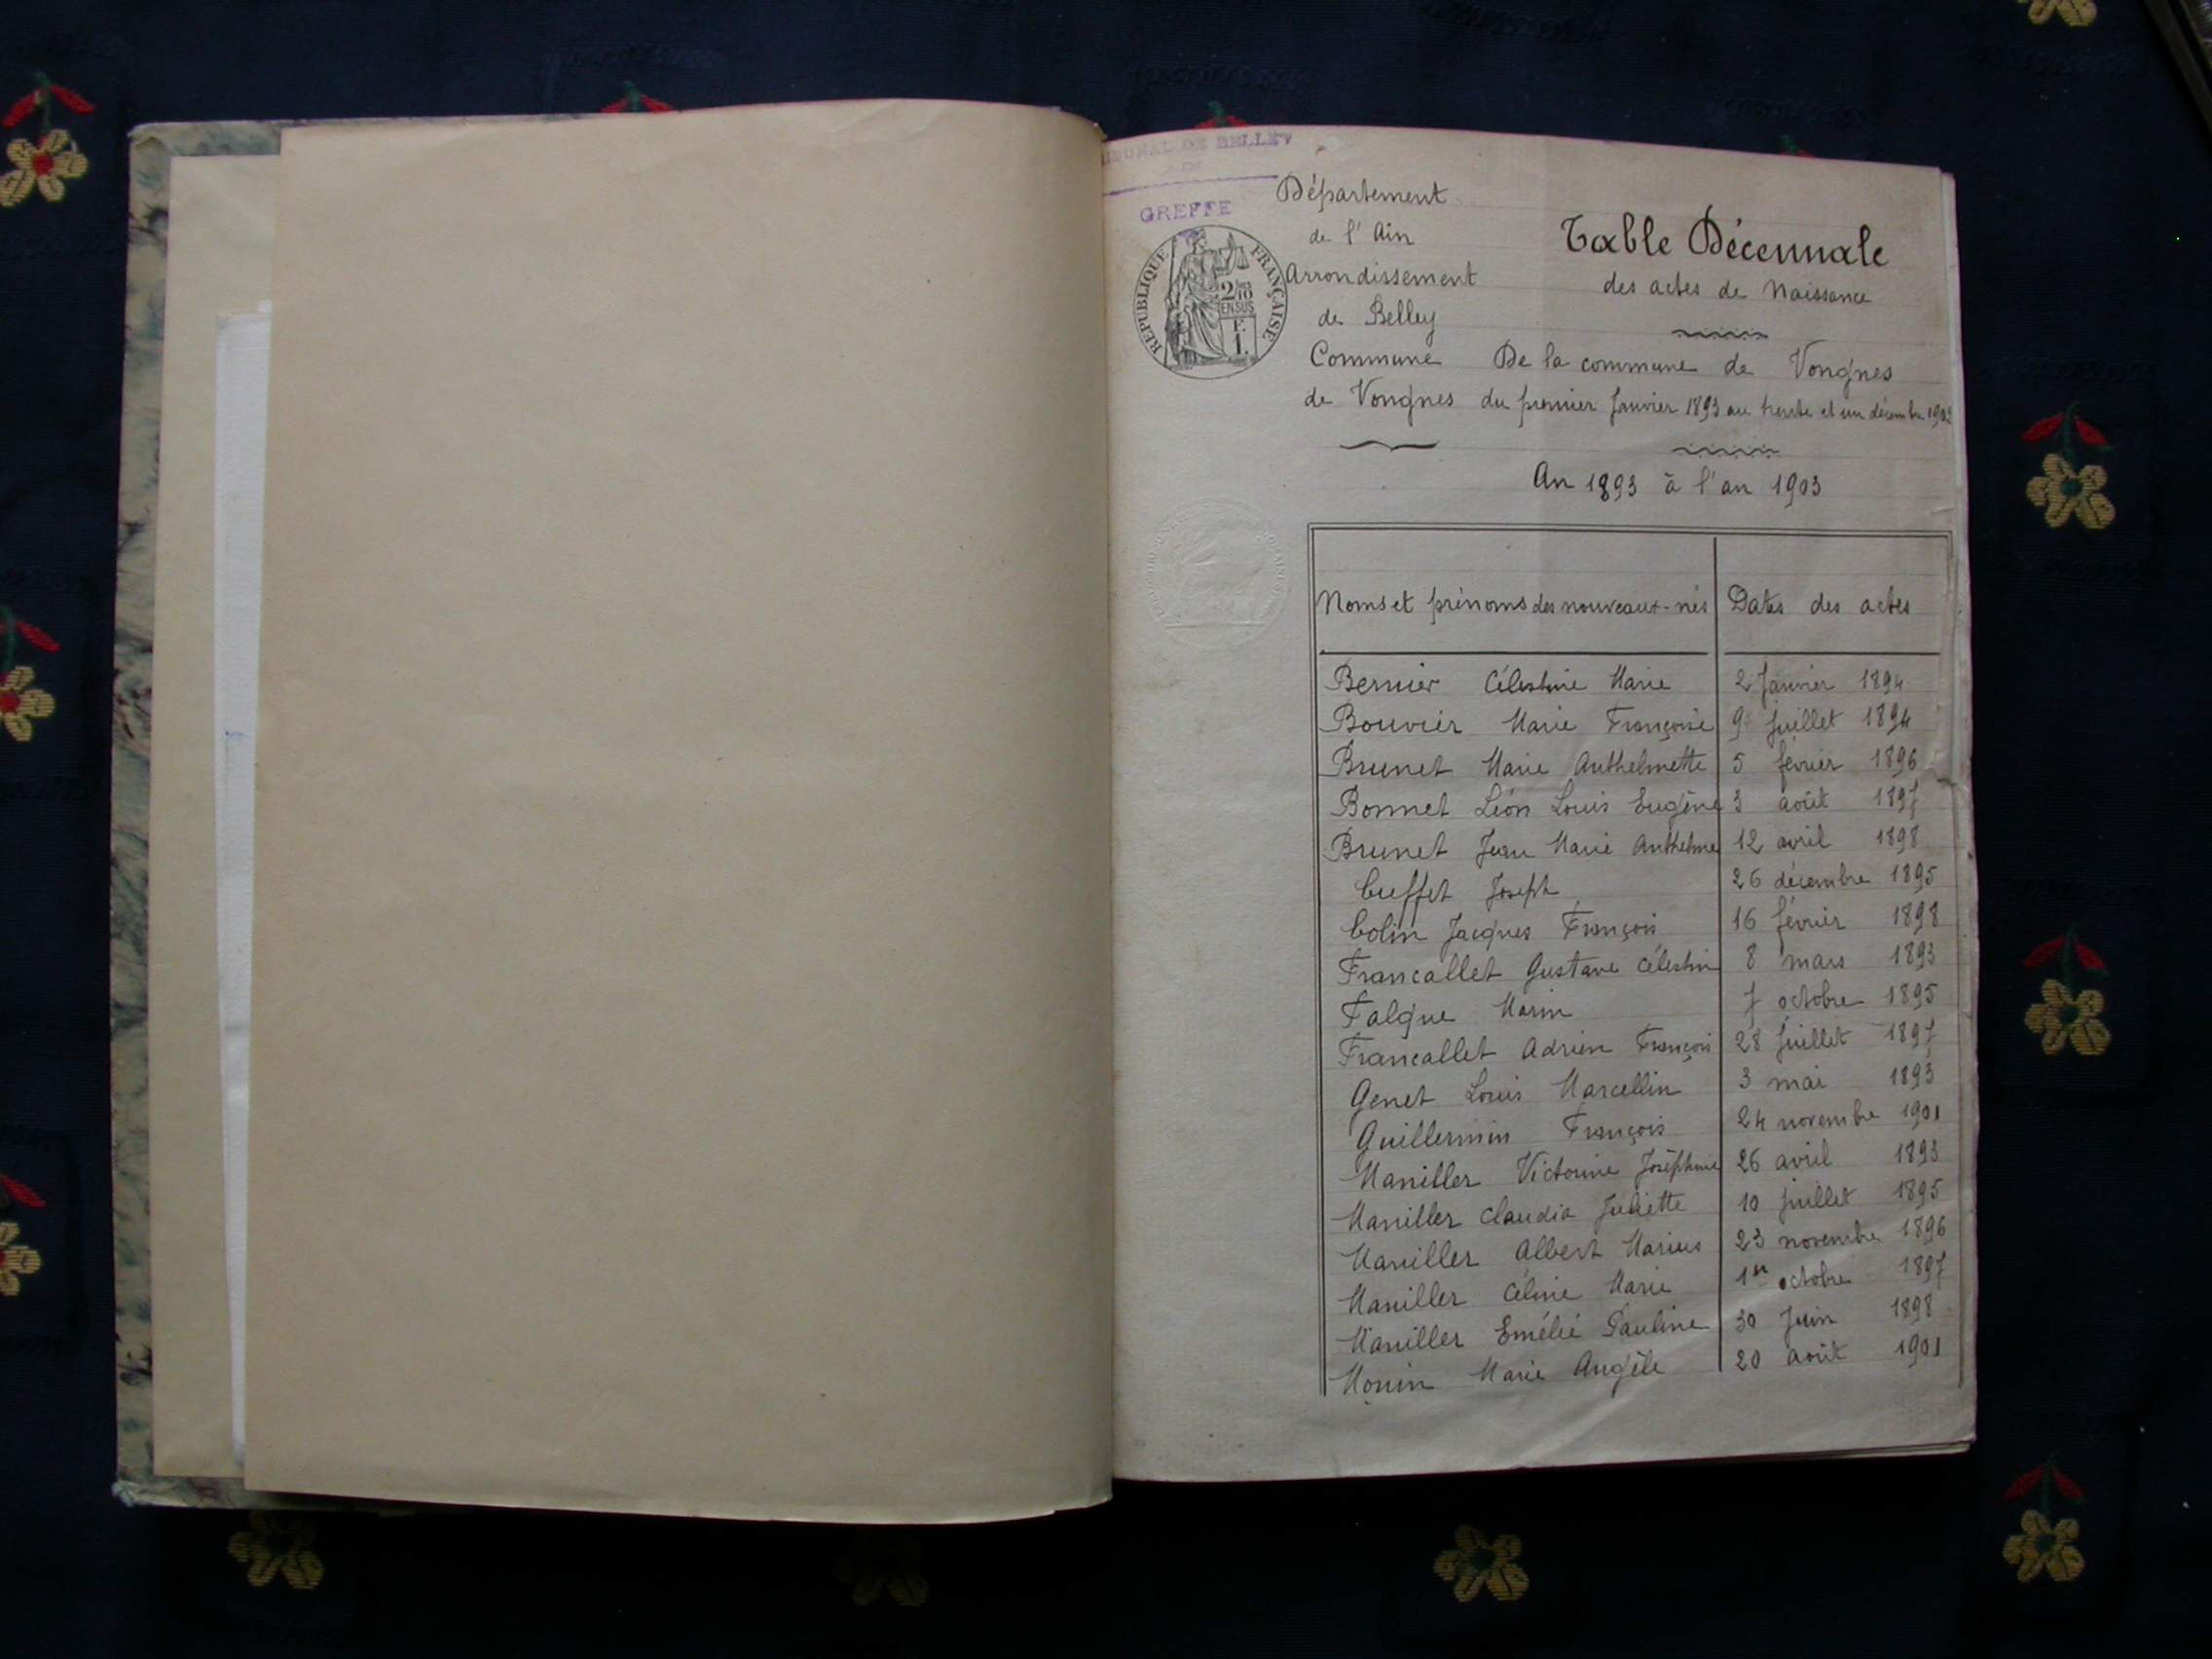 TRIBUNAL DE BELLEY
GREFFE
RÉPUBLIQUE FRANÇAISE
2/10
EN SUS
Département
de l'Ain
Arrondissement
de Belley
Commune
de Vongnes
Table Décennale
des actes de Naissance
De la commune de Vongnes
du premier Janvier 1893 au trente et un décembre
An 1893 à l'an 1903
Noms et prénoms des nouveaux-nés Dates des actes
Bernier Célestine Marie 2 Janvier 1894
Bouvier Marie Françoise 9 Juillet 1894
Brunet Marie Anthelmette 5 février 1896
Bonnet Léon Louis Eugène 3 août 1897
Brunet Jean Marie Anthelme 12 avril 1898
Cuffet Joseph 26 décembre 1895
Colin Jacques François 16 février 1898
Francallet Gustave Célestin 8 mars 1893
Falque Marin 7 octobre 1895
Francallet Adrien François 28 Juillet 1897
Genet Louis Marcellin 3 mai 1893
Guillermin François 24 novembre 1901
Maniller Victorine Joséphine 26 avril 1893
Maniller Claudia Juliette 10 Juillet 1895
Maniller Albert Marius 23 novembre 1896
Maniller Céline Marie 1er octobre 1897
Maniller Emélie Pauline 30 Juin 1898
Monin Marie Angèle 20 août 1901